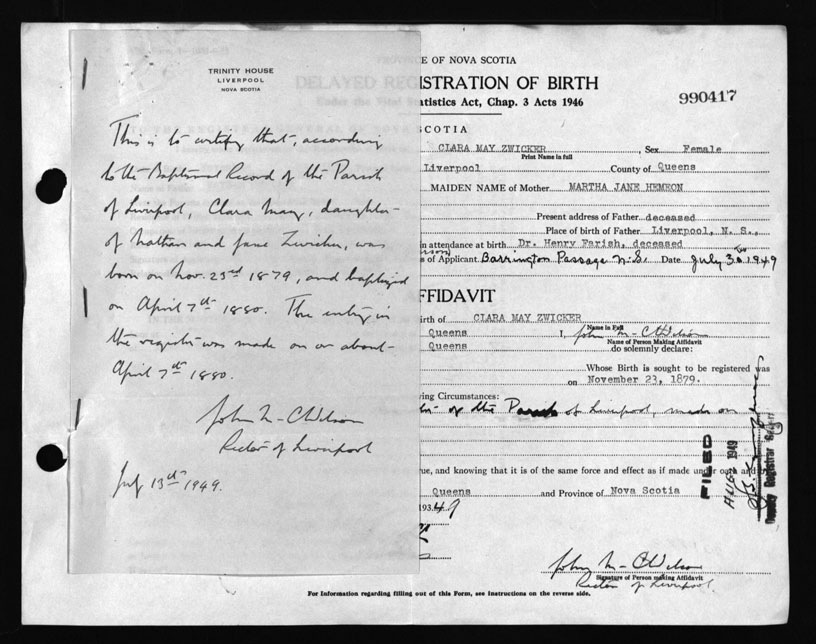 TRINITY HOUSE
LIVERPOOL
NOVA SCOTIA
This is to certify that, according
to the Baptismal Record of the Parish
of Liverpool, Clara May, daughter
of Nathan and Jane Zwicker, was
born on Nov. 23rd 1879, and baptized
on April 7th 1880. The entry in
the register was made on or about
April 7th 1880.
John M-C Wilson
Rector of Liverpool
July 13th 1949.
E OF NOVA SCOTIA
DELAYED REGISTRATION OF BIRTH
atistics Act, Chap. 3 Acts 1946
990417
SCOTIA
CLARA MAY ZWICKER, Sex Female
Print Name in full
Liverpool County of Queens
MAIDEN NAME of Mother MARTHA JANE HEMEON
Present address of Father deceased
Place of birth of Father Liverpool, N. S.,
in attendance at birth Dr. Henry Farish, deceased
s of Applicant Barrington Passage N.S. Date July 30 1949
FFIDAVIT
irth of CLARA MAY ZWICKER
Name in Full
Queens I, John M-C Wilson
Name of Person Making Affidavit
Queens do solemnly declare:
Whose Birth is sought to be registered was
on November 23, 1879.
ving Circumstances:
of the Parish of Liverpool, made on
ue, and knowing that it is of the same force and effect as if made under oath and
Queens and Province of Nova Scotia
193 49
FILED
AUG 1949
Deputy Registrar
John M-C Wilson
Signature of Person making Affidavit
Rector of Liverpool.
For Information regarding filling out of this Form, see Instructions on the reverse side.